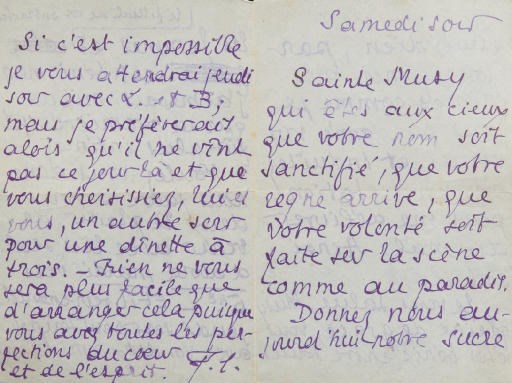 Si c'est impossible
je vous attendrai jeudi
soir avec L. et B;
mais je préfèrerait
alors qu'il ne vînt
pas ce jour là et que
vous choisissiez, lui et
vous, un autre soir
pour une dînette à
trois. — Rien ne vous
sera plus facile que
d'arranger cela puisque
vous avez toutes les per-
fections du coeur
et de l'esprit.
Samedi soir
Sainte Musy
qui êtes aux cieux
que votre nom soit
sanctifié, que votre
règne arrive, que
votre volonté soit
faite sur la scène
comme au paradis.
Donnez nous au-
jourd'hui notre sucre